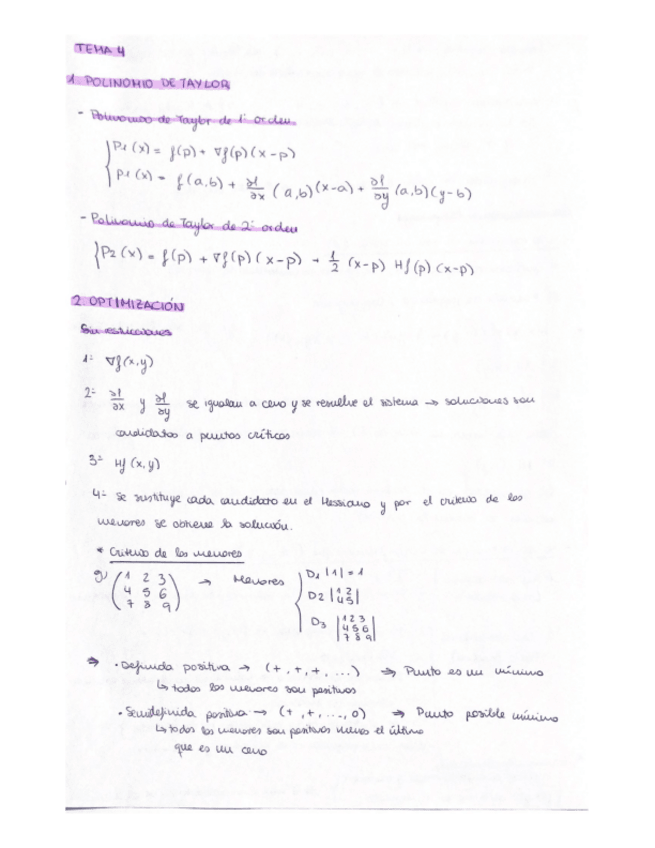 TEMA 4
1. POLINOMIO DE TAYLOR
- Polinomio de Taylor de 1º orden
P1(x) = f(p) + ∇f(p)(x-p)
P1(x) = f(a,b) + ∂f/∂x (a,b)(x-a) + ∂f/∂y (a,b)(y-b)
- Polinomio de Taylor de 2º orden
P2(x) = f(p) + ∇f(p)(x-p) + 1/2 (x-p) Hf(p)(x-p)
2. OPTIMIZACIÓN
Sin restricciones
1º ∇f(x,y)
2º ∂f/∂x y ∂f/∂y se igualan a cero y se resuelve el sistema → soluciones son
candidatos a puntos críticos
3º Hf(x,y)
4º Se sustituye cada candidato en el Hessiano y por el criterio de los
menores se obtiene la solución.
* Criterio de los menores
(1 2 3 → Menores D1 |1| = 1
4 5 6 D2 |1 2
7 8 9) 4 5|
D3 |1 2 3
4 5 6
7 8 9|
⇒ · Definida positiva → (+,+,+,...) ⇒ Punto es un mínimo
↳ todos los menores son positivos
· Semidefinida positiva → (+,+,...,0) ⇒ Punto posible mínimo
↳ todos los menores son positivos menos el último
que es un cero